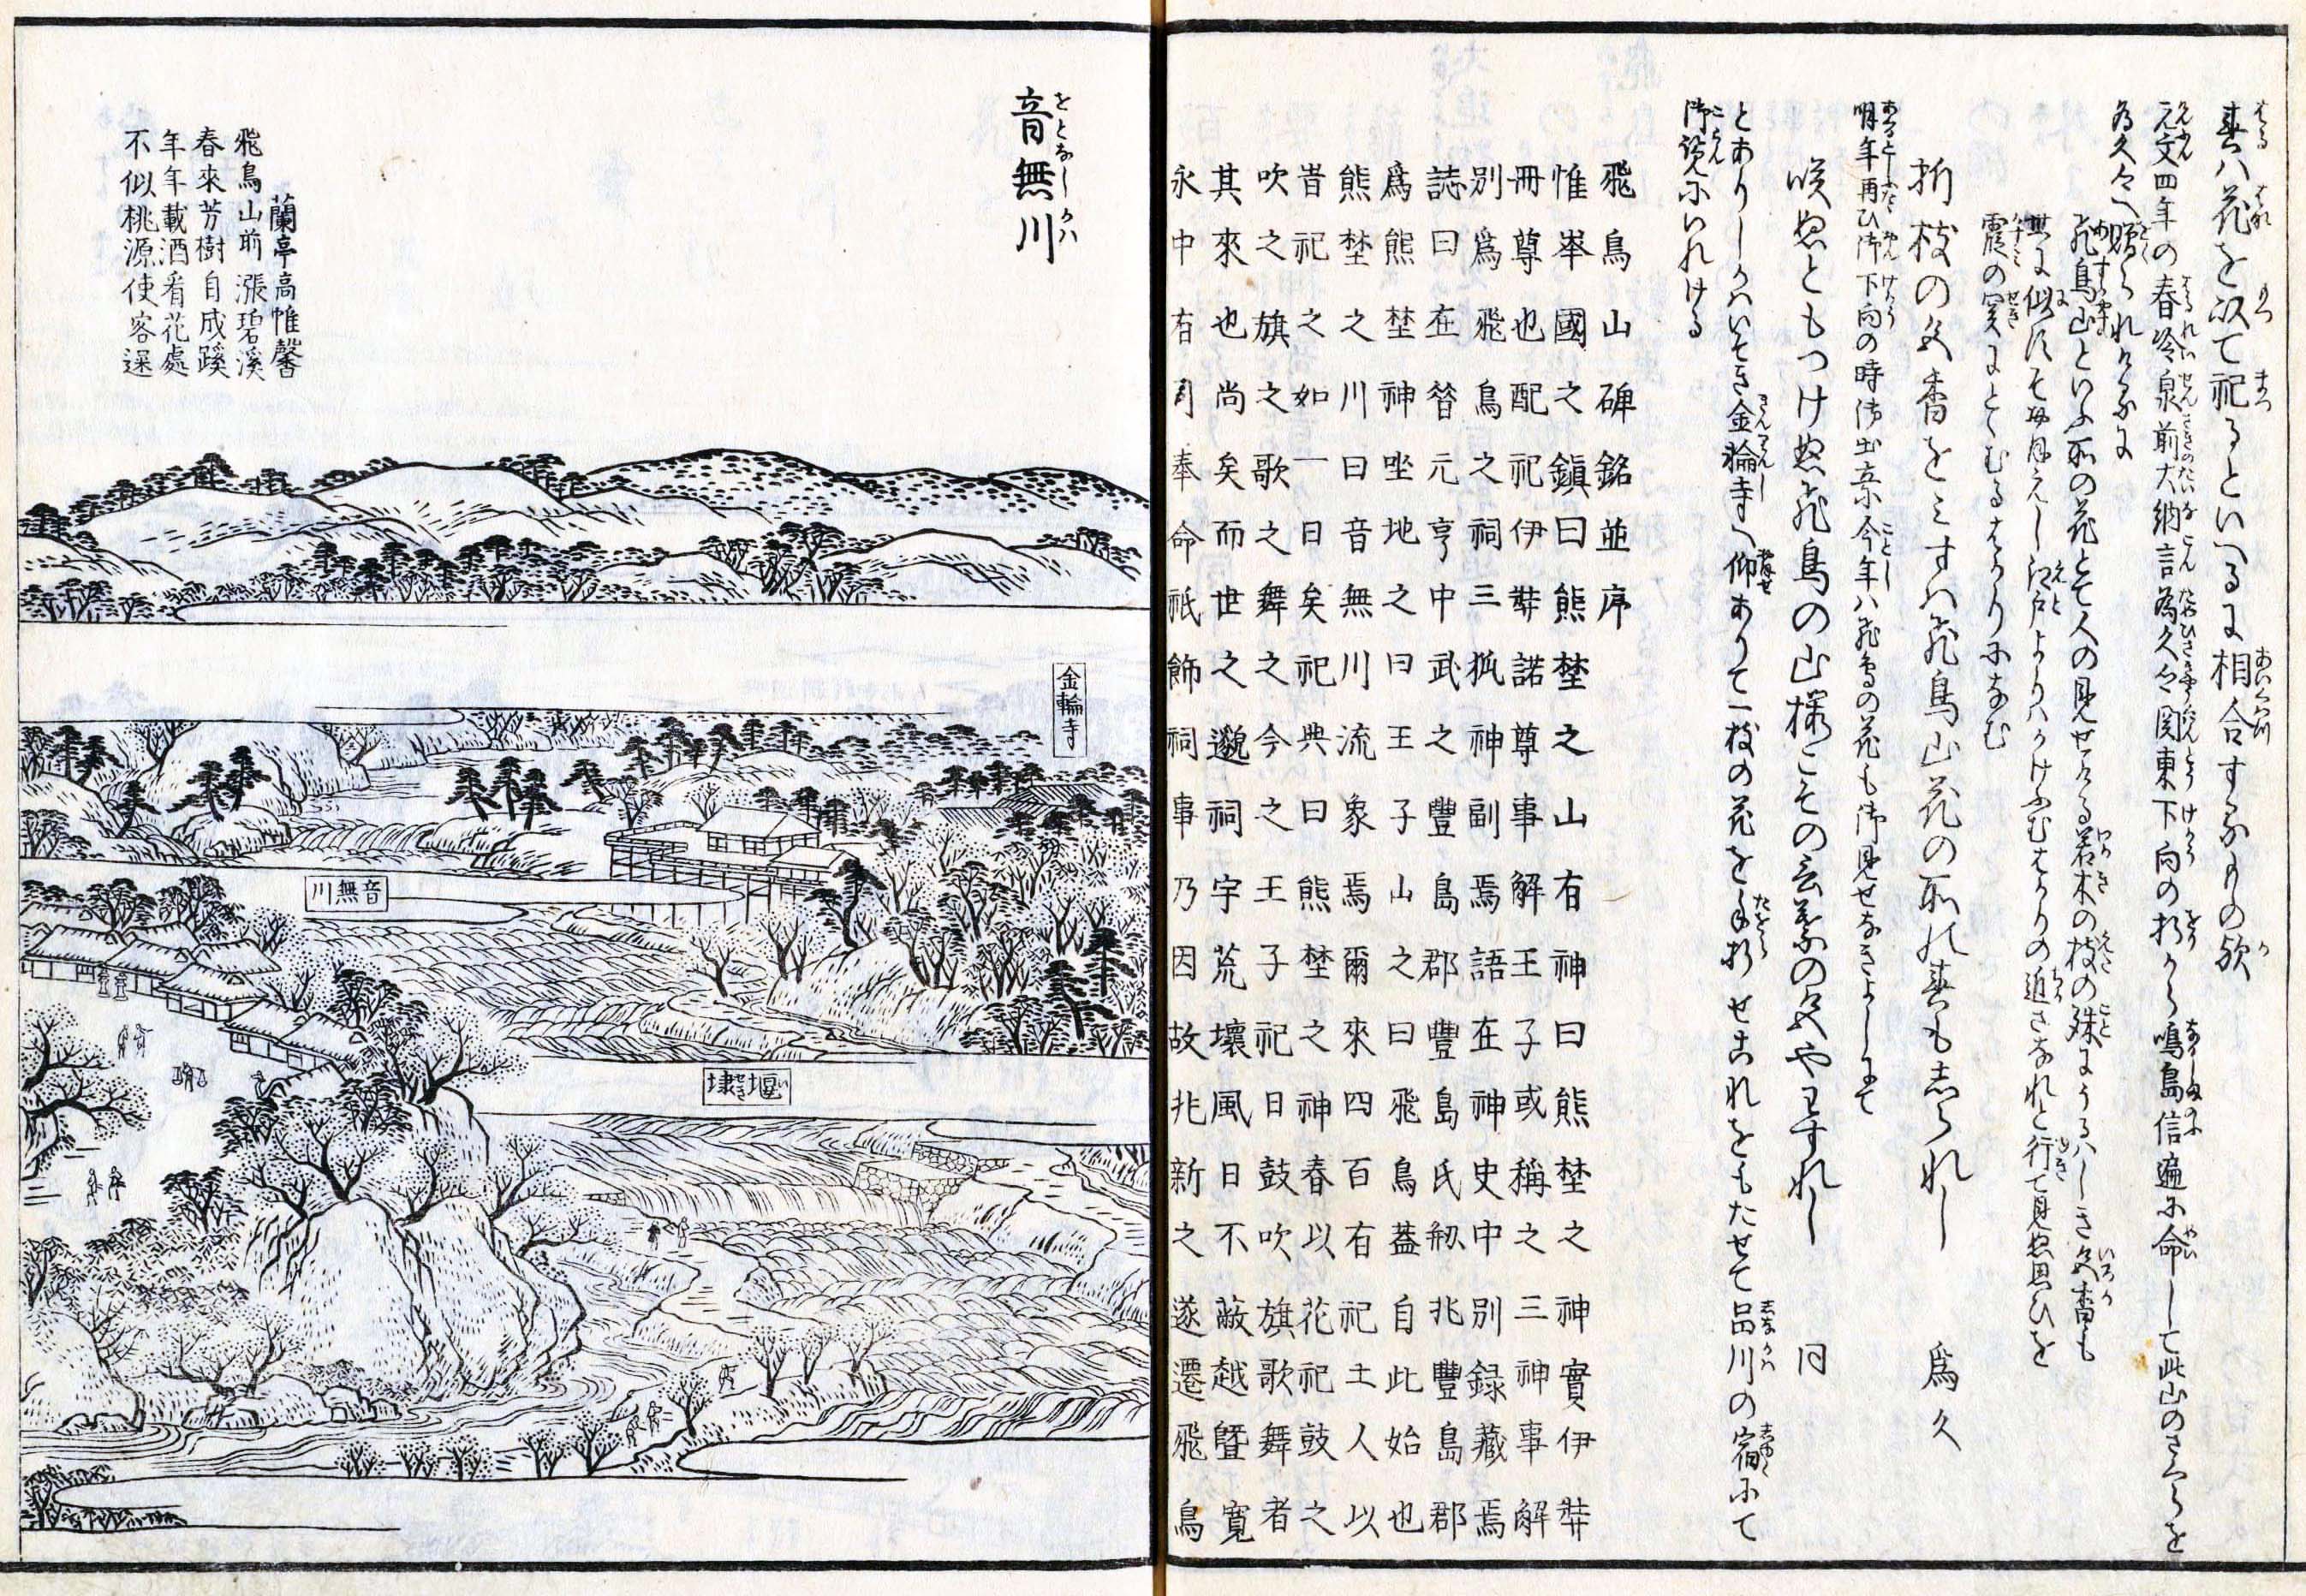 春ハ花を以て祀るといへるに相合するものか歟
元文四年の春冷泉前大納言為久卿関東下向の折から鳴島信遍に命して此山のさくらを
為久卿へ贈られけるに
飛鳥山といふ所の花とて人の見せける若木の枝の殊にうるハしき色香も
世に似すそ毎年江戸よりハ
霞の関にとゝむるはかりになむ
折枝の色香をミすハ飛鳥山花の所の春もしられし　爲久
明年再ひ御下向の時御出立今年ハ飛鳥の花も御見せなきよしにて
咲ぬともつけぬ飛鳥の山桜ことの言葉の色やわすれし　同
とありしかハいそき金輪寺へ仰ありて一枝の花を手折せこれをもたせて品川の宿にて
御覧にいれける
飛鳥山碑銘並序
惟峷國之鎭曰熊埜之山有神曰熊埜之神實伊弉
冊尊也配祀伊弉諾尊事解王子或稱之三神事解
別爲飛鳥之祠三狐神副焉語在神史中別録藏焉
誌曰在昝元亨中武之豐島郡豐島氏剏兆豐島郡
爲熊埜神坐地之曰王子山之曰飛鳥葢自此始也
熊埜之川曰音無川流象焉爾來四百有祀土人以
昔祀之如一日矣祀典曰熊埜之神春以花祀鼓之
吹之旗之歌之舞之今之王子祀日鼓吹旗歌舞者
其來也尚矣而世之邈祠宇荒壞風日不蔽越曁寛
永中有司奉命祇飾祠事乃因故兆新之遂遷飛鳥
音無川
をとなしかハ
蘭亭高惟馨
飛鳥山前漲碧溪
春來芳樹自成蹊
年年載酒看花處
不似桃源使客迷
金輪寺
音無川
堰埭